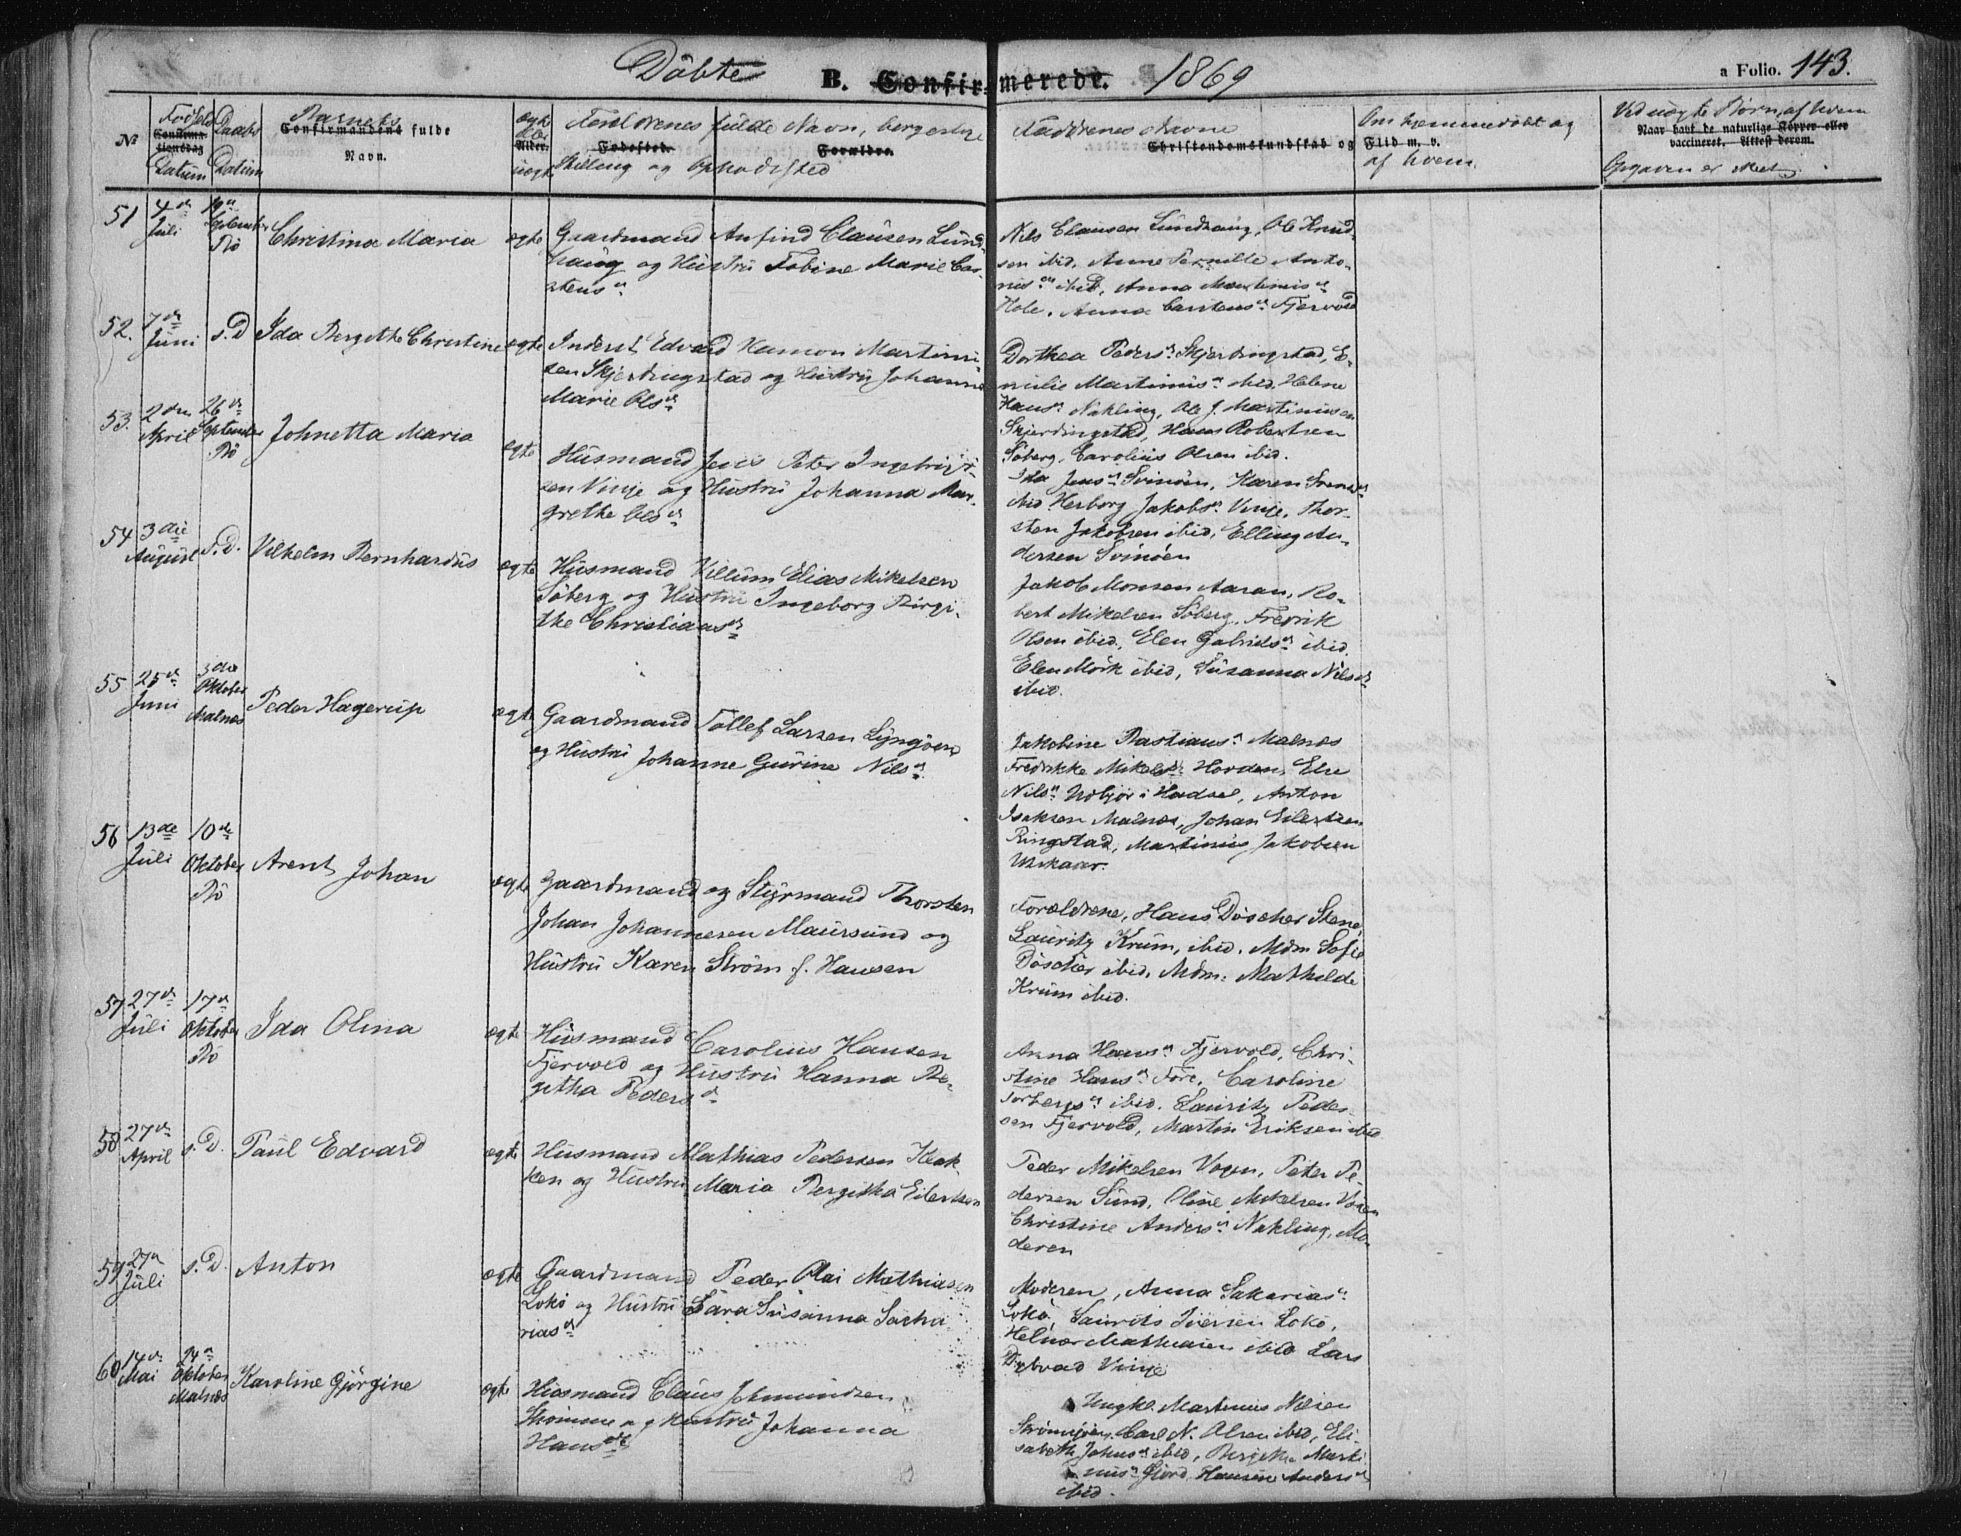 Döbte B. Confirmerede. 1869 a Folio. 143.
№ Födsels Datum Daabs Datum Barnets fulde Navn. ægte eller uægte Forældrenes fulde Navn, borgerlige Stilling og Opholdsted Faddernes Navne Om hjemmedöbt og af hvem Ved uægte Børn, af hvem Opgaven er
Confirmationsdag Confirmandens Alder. Fødested. Forældre. Christendomskundskab og Flid m. v. Naar havt de naturlige Kopper eller vaccineret, Attest derom.
51 4de Juli 19de September Bö Christina Maria ægte
Gaardmand Anfind Clausen Lund-
haug og Hustru Tobine Marie Car-
stensd
Nils Clausen Lundhaug, Ole Knud-
sen ibid, Anne Pernille Anto-
nisd ibid, Anna Martinusd
Hole, Anna Carstensd Fjervold
52. 7de Juni s.D Ida Bergithe Christine ægte
Inderst Edvard Hanson Martinu
sen Skjerdingstad og Hustru Johanna
Marie Olsd
Dorthea Pedersd Skjerdingstad, E-
milie Martinusd ibid, Helene
Hansd Nakling, Ole J. Martinussen
Skjerdingstad, Hans Robertsen
Söberg, Carolius Olsen ibid.
53. 2den April 26de September Bö Johnetta Maria ægte
Husmand Jens Peter Ingebrigt-
sen Vinje og Hustru Johanna Mar-
grethe Olsd
Ida Jensd Svinöen, Karen
ibid Herborg Jakobsd Vinje, Thor-
sten Jakobsen ibid, Elling An-
dersen Svinöen
54 3die August s.D. Vilhelm Bernhardus ægte
Husmand Villum Elias Mikelsen
Söberg og Hustru Ingeborg Birgi-
the Christiansd
Jakob Monsen Aaran, Ro-
bert Mikelsen Söberg, Fredrik
Olsen ibid, Elen Gabrielsd ibid,
Elen Mörk ibid, Susanna Nilsd
ibid.
55 25de Juni 3die Oktober Malnes Peder Hagerup ægte
Gaardmand Tollef Larsen Lyngöen
og Hustru Johanne Gurine Nilsd
Jakobine Bastiansd Malnes
Fredrikke Mikelsd Horden, Else
Nilsd i Hadsel, Anton
Isaksen Malnes, Johan Eilertsen
Ringstad, Martinus Jakobsen
Utskaar.
56 13de Juli 10de Oktober Bö Arent Johan ægte
Gaardmand og Styrmand Thorsten
Johan Johannesen Maursund og
Hustru Karen Ström f. Hansen
Forældrene, Hans Döscher Stene,
Lauritz Krum, ibid. Mdm Sofie
Döscher ibid, Mdm: Mathilde
Krum ibid.
57 27de Juli 17de Oktober Bö Ida Olina ægte
Husmand Carolius Hansen
Fjervold og Hustru Hanna Be-
githa Pedersd
Anna Hansd Fjervold, Chri-
stine Hansd Fore, Caroline
Torbergsd ibid. Lauritz Peder
sen Fjervold, Martin Eriksen ibid
58 27de April s.D. Paul Edvard ægte
Husmand Mathias Pedersen Klak-
ken og Hustru Maria Bergitha Eilertsen
Peder Mikelsen Vogn, Peter Pe-
dersen Sund, Oline Mikelsen
Christine Andersd Nakling, Mo-
deren
59 27de Juli s.D. Anton ægte
Gaardmand Peder Olai Mathiasen
Lokö og Hustru Sara Susanna Sacha
riasd
Moderen, Anna Sakariasd
Lokö, Laurits Iversen Lokö,
Helmer Mathiasen ibid Lars
Vinje
60 14de Mai 24de Oktober Malnes Karoline Gjörgine ægte
Husmand Claus Johnundsen
Strömme og Hustru Johanna
Hansdtr
Ungkl. Martinus Nilsen
Carl N. Olsen ibid, Eli-
sabeth Johnsd ibid, Bergitha Marti
nusd Gjerd, Hansine Andersd
ibid.